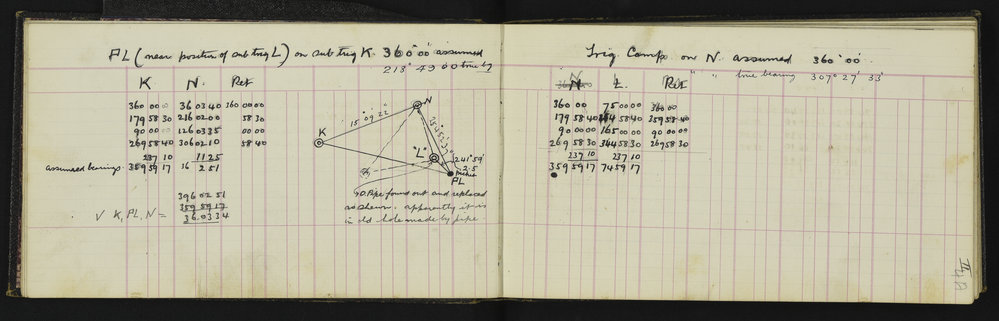 PL (near position of sub trig L) on sub trig K. 360° 00' assumed
213° 49 00 true by
K N. Ret
360 00 00 36 03 40 360 00 00
179 58 30 216 02 00 58 30
90 00 00 126 03 35 00 00
269 58 40 306 02 10 58 40
237 10 11 25
assumed bearings. 359 59 17 16 2 51
396 02 51
359 59 17
36.03 34
√ K, PL, N =
K
N
15° 09' 22"
"L"
241° 59'
2.5
PL
90. Pipe found out and replaced
as shewn. apparently it is
in old hole made by pipe.
Trig. Camp. on N. assumed 360° 00'.
" " true bearing 307° 27' 33"
N
N L. Ret
360 00 75 00 00 360 00
179 58 40 58 40 359 58 40
90 00 00 165 00 00 90 00 00
269 58 30 344 58 30 269 58 30
237 10 237 10
359 59 17 74 59 17